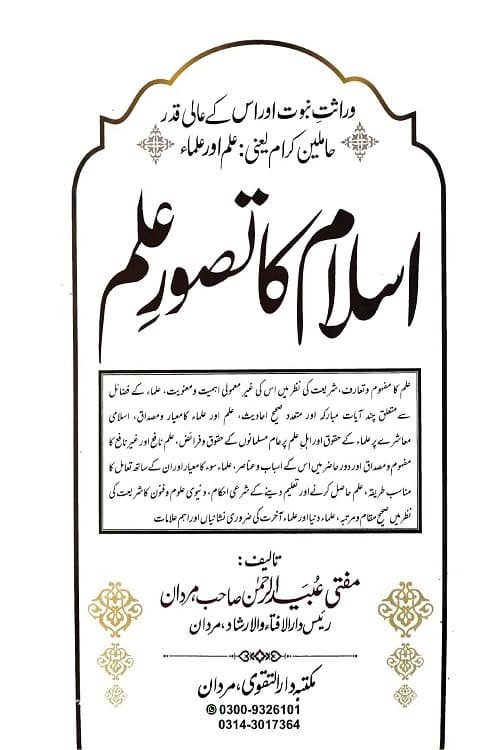 وراثتِ نبوت اور اس کے عالی قدر
حاملین کرام یعنی: علم اور علماء
اسلام کا تصورِ علم
علم کا مفہوم و تعارف، شریعت کی نظر میں اس کی غیر معمولی اہمیت و معنویت، علماء کے فضائل
سے متعلق چند آیات مبارکہ اور متعدد صحیح احادیث، علم اور علماء کا معیار و مصداق، اسلامی
معاشرے پر علماء کے حقوق اور اہل علم پر عام مسلمانوں کے حقوق و فرائض، علم نافع اور غیر نافع کا
مفہوم و مصداق اور دور حاضر میں اس کے اسباب و عناصر، علماء سوء کا معیار اور ان کے ساتھ تعامل کا
مناسب طریقہ، علم حاصل کرنے اور تعلیم دینے کے شرعی احکام، دنیوی علوم و فنون کا شریعت کی
نظر میں صحیح مقام و مرتبہ، علماء دنیا اور علماء آخرت کی ضروری نشانیاں اور اہم علامات
تالیف:
مفتی عبید الرحمٰن صاحب، مردان
رئیس دارالافتاء والارشاد، مردان
مکتبہ دارالتقوی، مردان
0300-9326101
0314-3017364